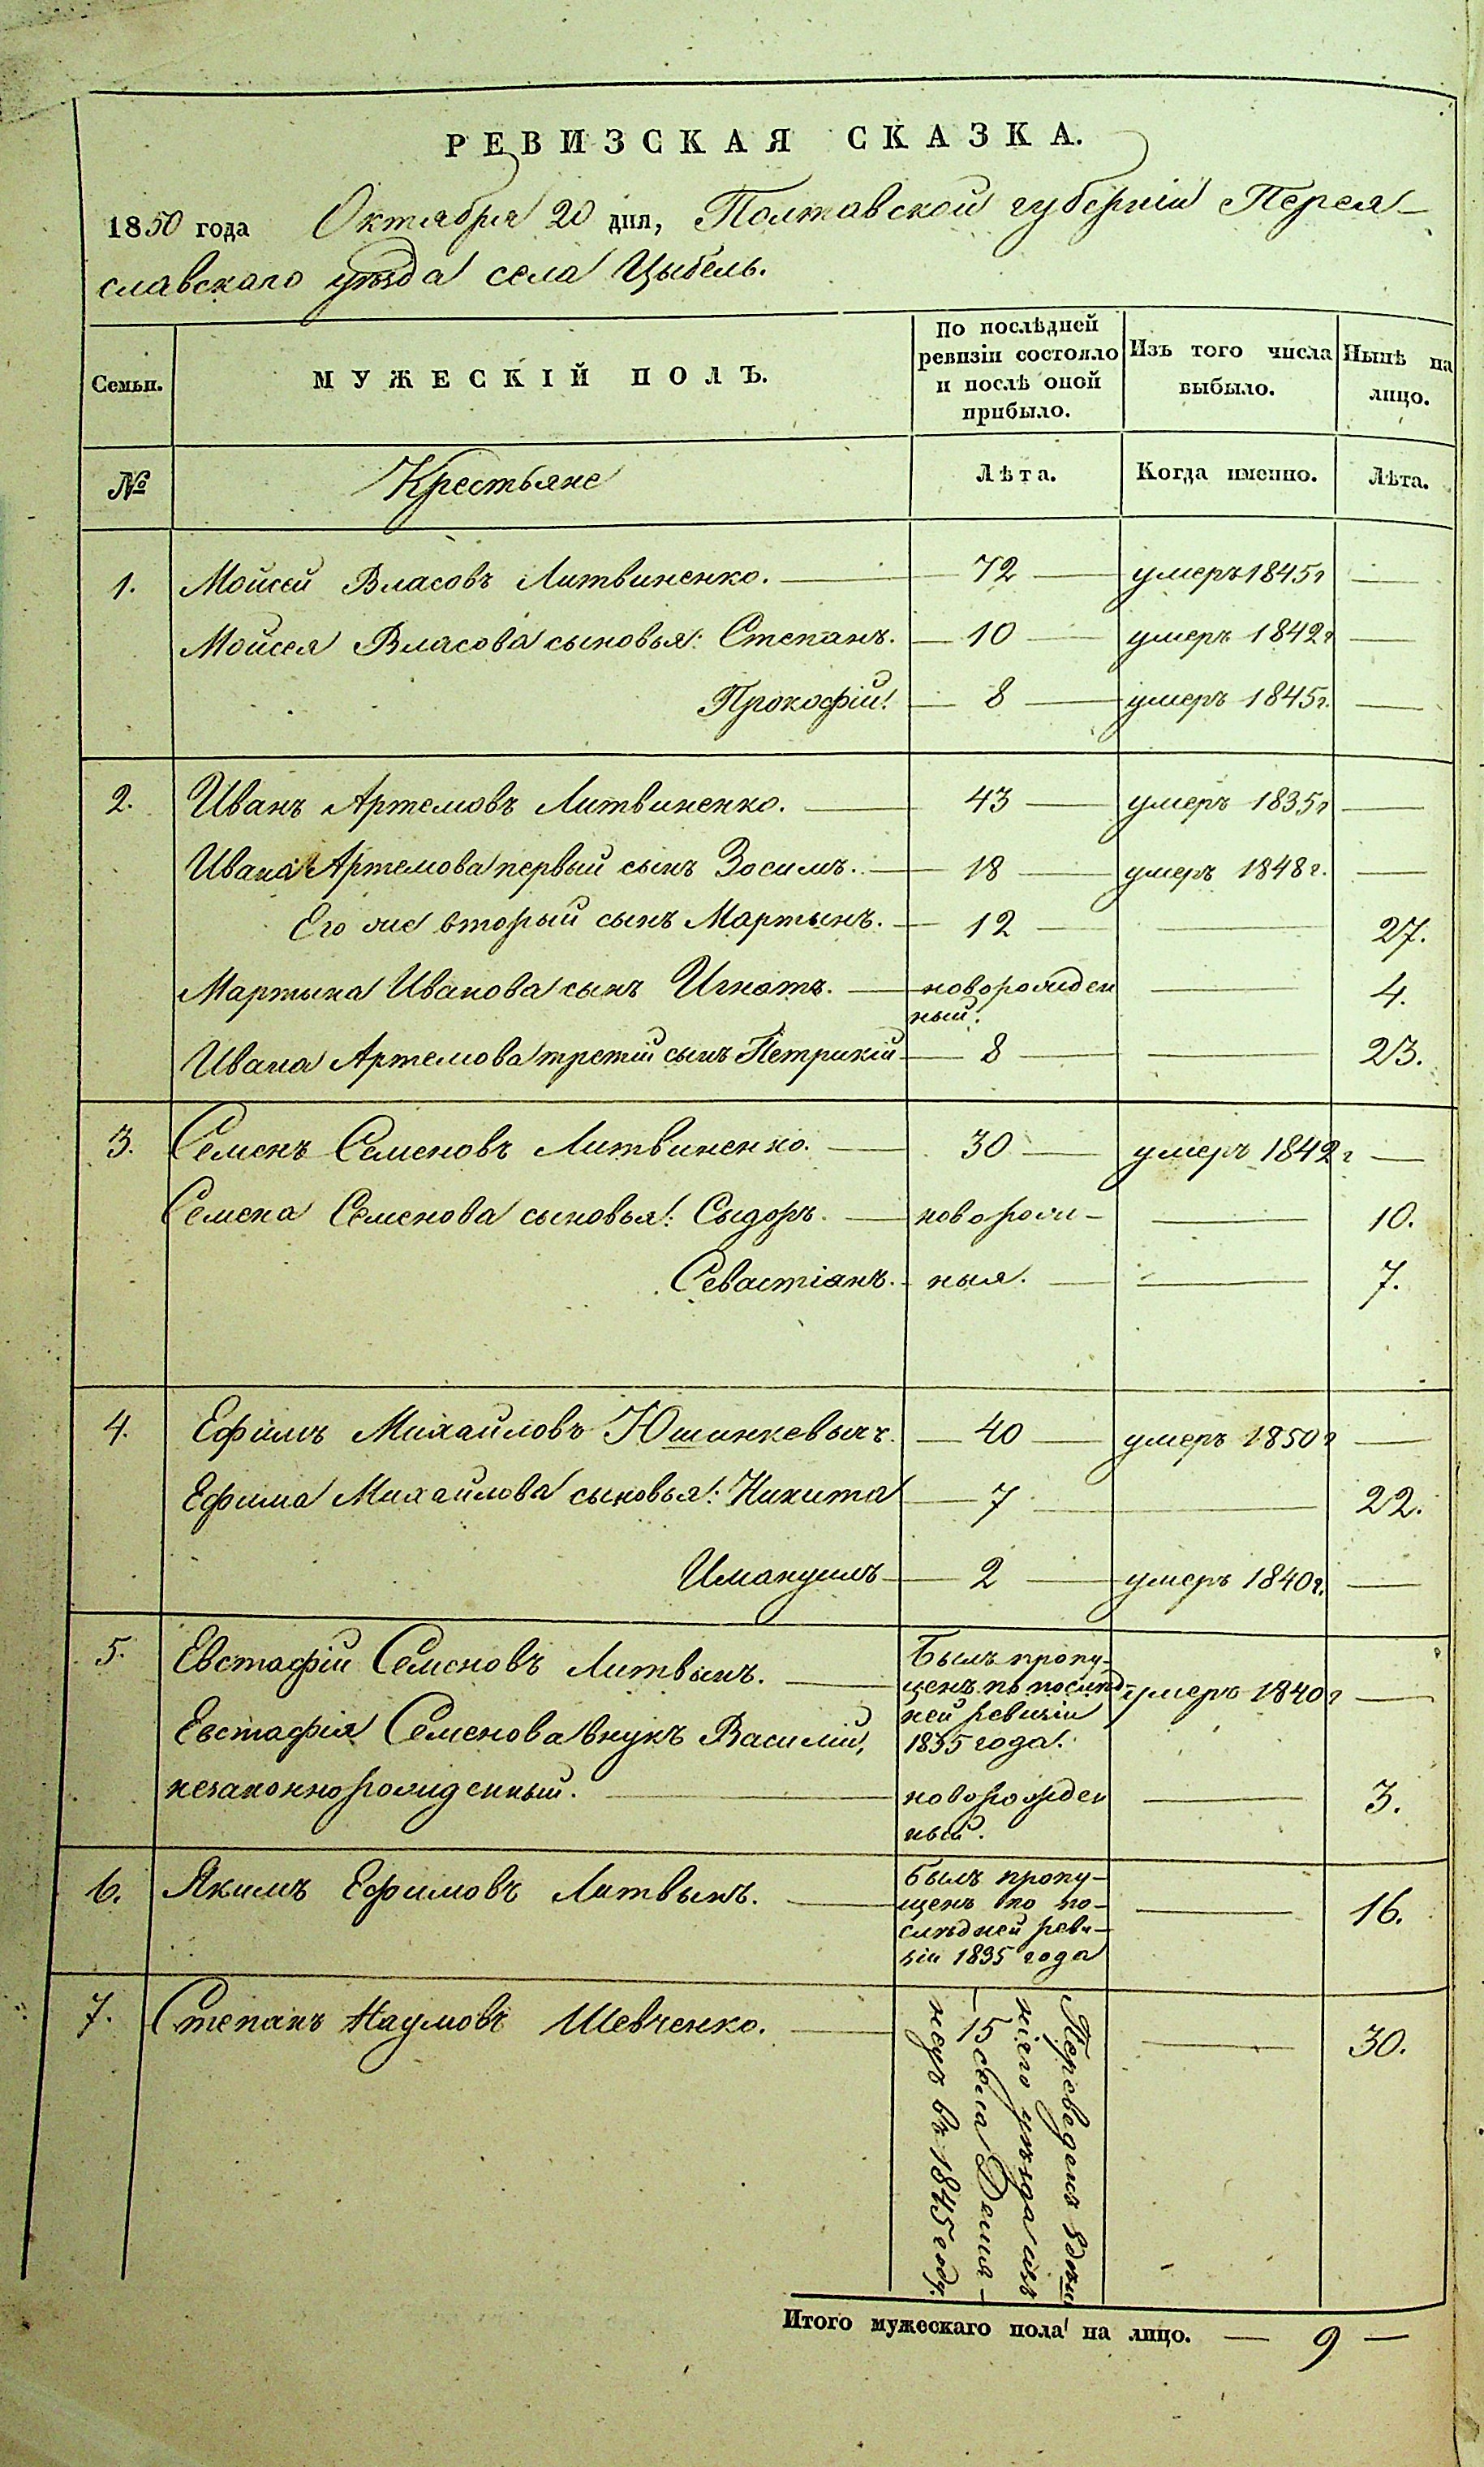 РЕВИЗСКАЯ СКАЗКА.
1850 года Октября 20 дня, Полтавской губерніи Перея-
славскаго уѣзда села Цыбель.
Семьи. МУЖЕСКІЙ ПОЛЪ. По послѣдней ревизіи состояло и послѣ оной прибыло. Изъ того числа выбыло. Нынѣ на лицо.
№ Крестьяне Лѣта. Когда именно. Лѣта.
1. Мойсей Власовъ Литвиненко. — 72 — умеръ 1845г —
Мойсея Власова сыновья: Степанъ. — 10 — умеръ 1842г —
Прокофій. — 8 — умеръ 1845г. —
2. Иванъ Артемовъ Литвиненко. — 43 — умеръ 1835г —
Ивана Артемова первый сынъ Зосимъ. — 18 — умеръ 1848г. —
Его же вторый сынъ Мартынъ. — 12 — — 27.
Мартына Иванова сынъ Игнатъ. — новорожден — 4.
ный.
Ивана Артемова третій сынъ Петрикій — 8 — — 23.
3. Семенъ Семеновъ Литвиненко. — 30 — умеръ 1842г —
Семена Семенова сыновья: Сыдоръ. — новорож- — 10.
Севастіянъ. - ныя. — — 7.
4. Ефимъ Михайловъ Юшинкевычъ. — 40 — умеръ 1850г —
Ефима Михайлова сыновья: Никита — 7 — 22.
Имануилъ — 2 — умеръ 1840г. —
5. Евстафій Семеновъ Литвынъ. — Былъ пропу-
щенъ по послѣд- умеръ 1840г —
ней ревизіи
Евстафія Семенова внукъ Василій, 1835 года.
незаконнорожденный. — новорожден — 3.
ный.
6. Якимъ Ефимовъ Литвынъ. — Былъ пропу-
щенъ по по- — 16.
слѣдней реви-
зіи 1835 года
7. Степанъ Наумовъ Шевченко. — — 30.
Переведенъ Здѣш
нiяго уѣзда изъ
— 15 села Демя-
нецъ въ 1845 году.
Итого мужескаго пола на лицо. — 9 —